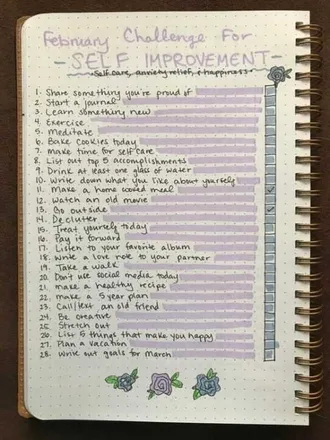 February Challenge For
- SELF IMPROVEMENT -
- Self care, anxiety relief, & happiness -
1. Share something you're proud of
2. Start a journal
3. Learn something new
4. Exercise
5. Meditate
6. Bake cookies today
7. Make time for self care
8. List out top 5 accomplishments
9. Drink at least one glass of water
10. Write down what you like about yourself
11. Make a home cooked meal
12. Watch an old movie
13. Go outside
14. Declutter
15. Treat yourself today
16. Pay it forward
17. Listen to your favorite album
18. Write a love note to your partner
19. Take a walk
20. Don't use social media today
21. make a healthy recipe
22. make a 5 year plan
23. Call/text an old friend
24. Be creative
25. Stretch out
26. List 5 things that make you happy
27. Plan a vacation
28. Write out goals for March